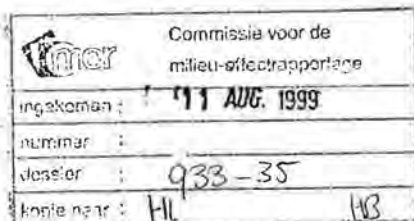 mer
Commissie voor de
milieu-effectrapportage
ingekomen : 11 AUG. 1999
nummer :
dossier : 933-35
kopie naar : HL HB